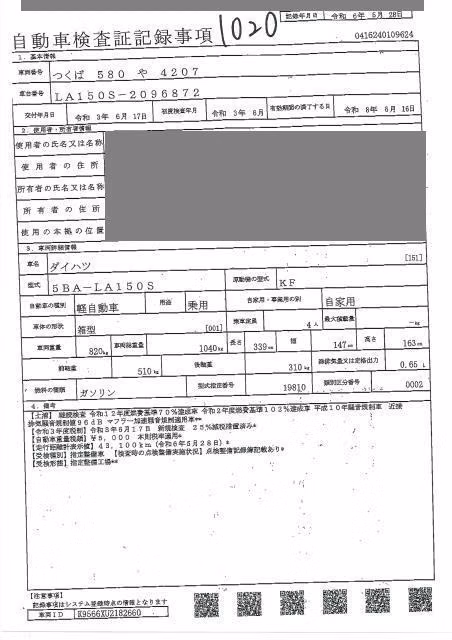 記録年月日 令和 6年 5月 28日
自動車検査証記録事項
1020
0416240109624
1. 基本情報
車両番号 つくば 580 や 4207
車台番号 LA150S-2096872
交付年月日 令和 3年 6月 17日 初度検査年月 令和 3年 6月 有効期間の満了する日 令和 8年 6月 16日
2. 使用者・所有者情報
使用者の氏名又は名称
使用者の住所
所有者の氏名又は名称
所有者の住所
使用の本拠の位置
3. 車両詳細情報
車名 ダイハツ [151]
型式 5BA-LA150S 原動機の型式 KF
自動車の種別 軽自動車 用途 乗用 自家用・事業用の別 自家用
車体の形状 箱型 [001] 乗車定員 4人 最大積載量 -kg
車両重量 820kg 車両総重量 1040kg 長さ 339cm 幅 147cm 高さ 163cm
前軸重 510kg 後軸重 310kg 総排気量又は定格出力 0.65L
燃料の種類 ガソリン 型式指定番号 19810 類別区分番号 0002
4. 備考
【土浦】 継続検査 令和12年度燃費基準70%達成車 令和2年度燃費基準102%達成車 平成10年騒音規制車 近接
排気騒音規制値96dB マフラー加速騒音規制適用車*
【令和3年度税制】令和3年6月17日 新規検査 25%減税措置済み*
【自動車重量税額】¥5,000 本則税率適用*
【走行距離計表示値】43,100km(令和6年5月28日)*
【受検種別】指定整備車 【検査時の点検整備実施状況】点検整備記録簿記載あり*
【受検形態】指定整備工場**
【注意事項】
記録事項はシステム登録時点の情報となります
車両ID K9566XU2182660